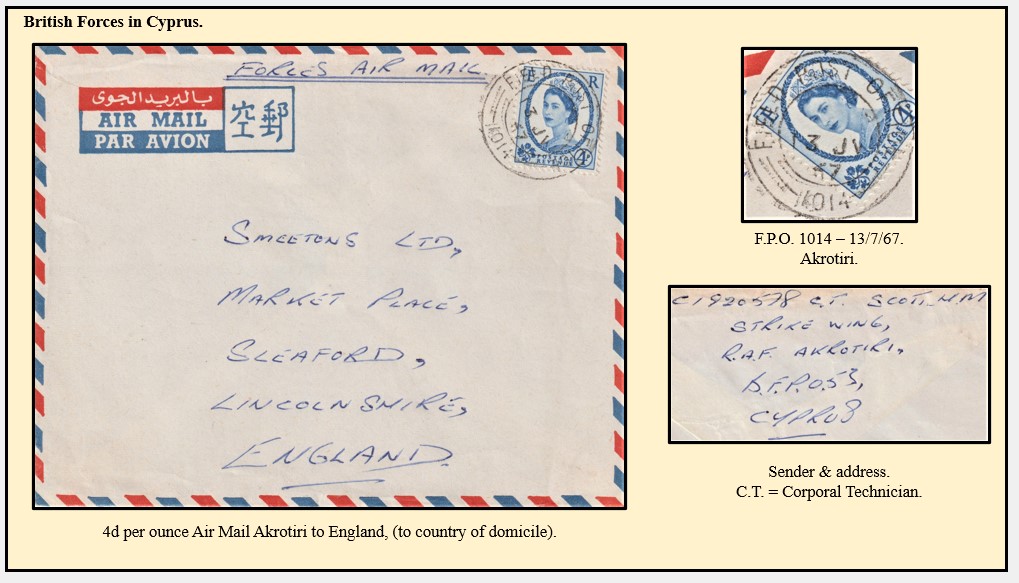 British Forces in Cyprus.
FORCES AIR MAIL
بالبريد الجوى
AIR MAIL
PAR AVION
空郵
FIELD POST OF
E R
1014
POSTAGE
REVENUE
4D
SMEETONS LTD,
MARKET PLACE,
SLEAFORD,
LINCOLNSHIRE,
ENGLAND.
4d per ounce Air Mail Akrotiri to England, (to country of domicile).
FIELD POST OF
3 JY
67
1014
4D
F.P.O. 1014 – 13/7/67.
Akrotiri.
C1920578 C.T. SCOTT. W.M
STRIKE WING,
R.A.F. AKROTIRI,
B.F.P.O.53,
CYPRUS
Sender & address.
C.T. = Corporal Technician.